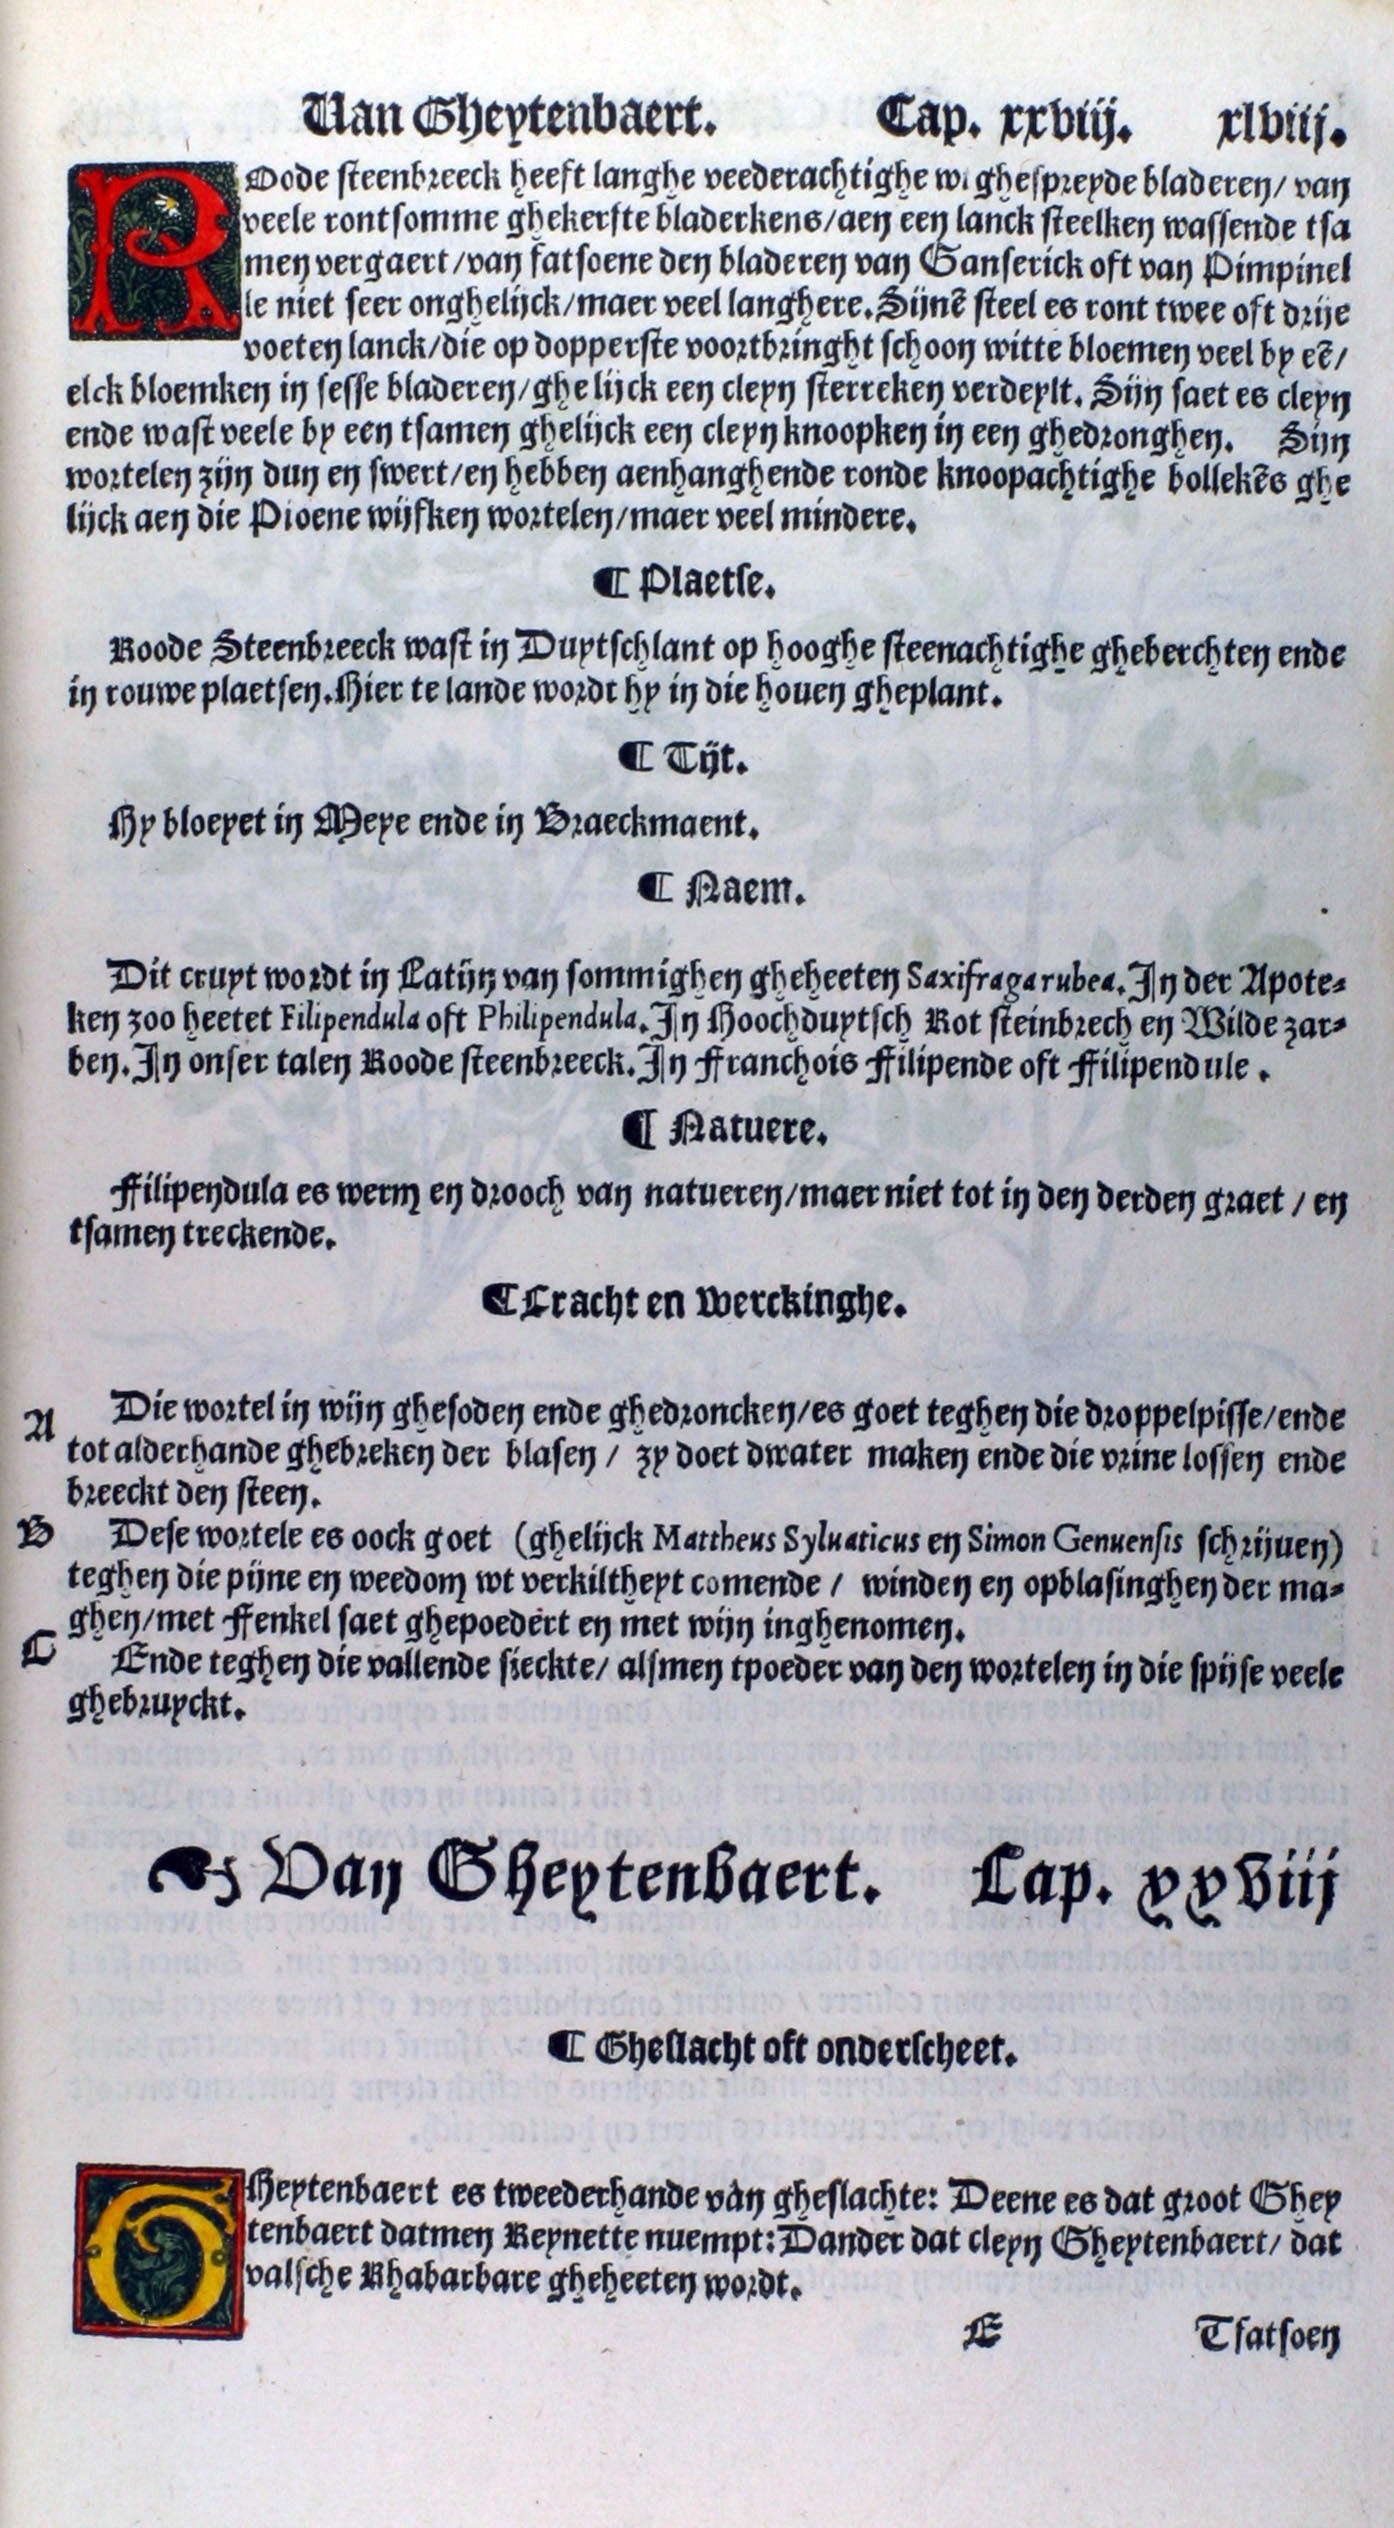 Van Gheytenbaert. Cap. xxviij. xlviij.
ROode steenbreeck heeft langhe veederachtighe wt ghespreyde bladeren/ van
veele rontsomme ghekerfte bladerkens/aen een lanck steelken wassende tsa
men vergaert/van fatsoene den bladeren van Ganserick oft van Pimpinel
le niet seer onghelijck/maer veel langhere. Sijnē steel es ront twee oft drije
voeten lanck/die op dopperste voortbringht schoon witte bloemen veel by eē/
elck bloemken in sesse bladeren/ghelijck een cleyn sterreken verdeylt. Sijn saet es cleyn
ende wast veele by een tsamen ghelijck een cleyn knoopken in een ghedronghen. Sijn
wortelen zijn dun en swert/en hebben aenhanghende ronde knoopachtighe bollekēs ghe
lijck aen die Pioene wijfken wortelen/maer veel mindere.
¶ Plaetse.
Roode Steenbreeck wast in Duytschlant op hooghe steenachtighe gheberchten ende
in rouwe plaetsen. Hier te lande wordt hy in die houen gheplant.
¶ Tijt.
Hy bloeyet in Meye ende in Braeckmaent.
¶ Naem.
Dit cruyt wordt in Latijn van sommighen gheheeten Saxifraga rubea. In der Apote⸗
ken zoo heetet Filipendula oft Philipendula. In Hoochduytsch Rot steinbrech en Wilde zar⸗
ben. In onser talen Roode steenbreeck. In Franchois Filipende oft Filipendule .
¶ Natuere.
Filipendula es werm en drooch van natueren/maer niet tot in den derden graet / en
tsamen treckende.
¶ Cracht en werckinghe.
A Die wortel in wijn ghesoden ende ghedroncken/es goet teghen die droppelpisse/ende
tot alderhande ghebreken der blasen / zy doet dwater maken ende die vrine lossen ende
breeckt den steen.
B Dese wortele es oock goet (ghelijck Mattheus Syluaticus en Simon Genuensis schrijuen)
teghen die pijne en weedom wt verkiltheyt comende / winden en opblasinghen der ma⸗
ghen/met Fenkel saet ghepoedert en met wijn inghenomen.
C Ende teghen die vallende sieckte/ alsmen tpoeder van den wortelen in die spijse veele
ghebruyckt.
☙ Van Gheytenbaert. Cap. xxviij
¶ Gheslacht oft onderscheet.
GHeytenbaert es tweederhande van gheslachte: Deene es dat groot Ghey
tenbaert datmen Reynette nuempt: Dander dat cleyn Gheytenbaert/ dat
valsche Rhabarbare gheheeten wordt.
E Tfatsoen